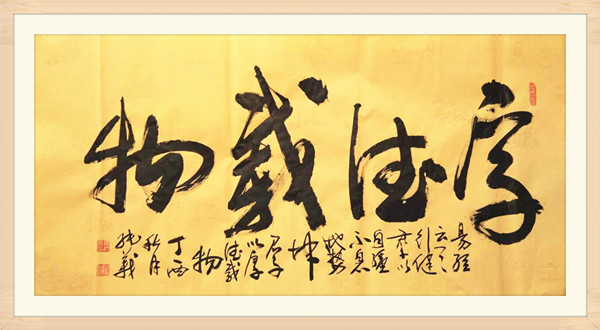 厚德载物
易经
云天
行健
君子以
自强
不息
地势
坤
君子
以厚
德载
物
丁酉
秋月